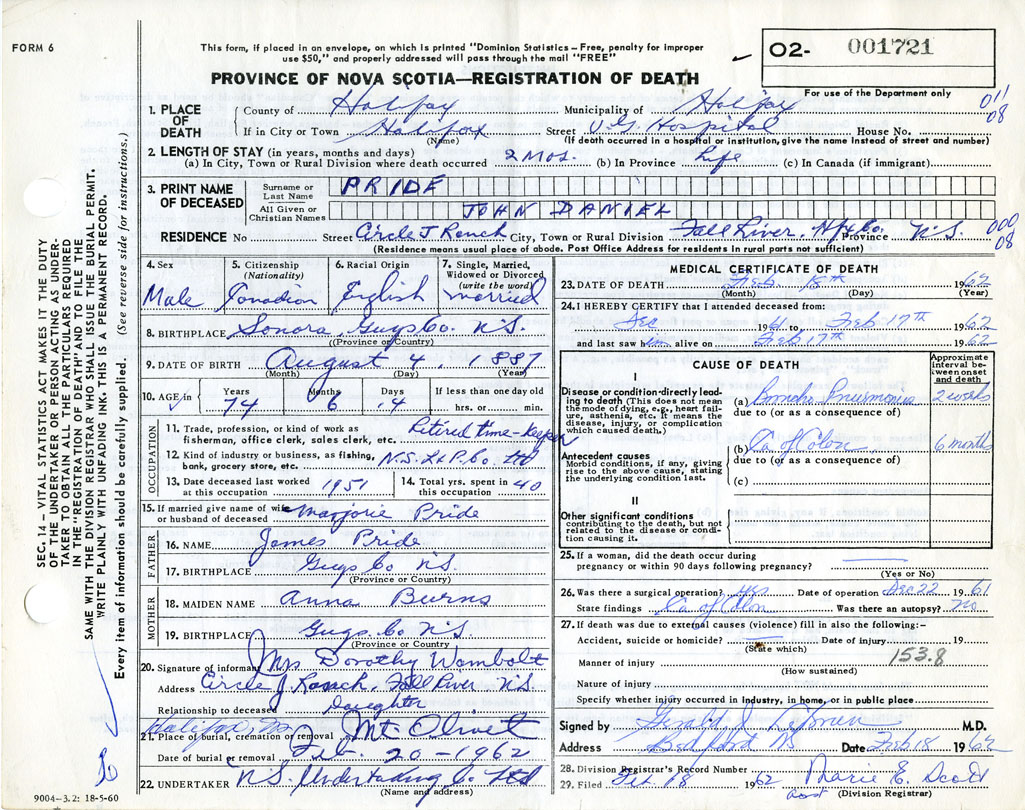 FORM 6
This form, if placed in an envelope, on which is printed "Dominion Statistics – Free, penalty for improper
use $50," and properly addressed will pass through the mail "FREE"
O2- 001721
PROVINCE OF NOVA SCOTIA—REGISTRATION OF DEATH
For use of the Department only
011
08
1. PLACE OF DEATH
County of Halifax Municipality of Halifax
If in City or Town Halifax Street V.G. Hospital House No.
(Name) (If death occurred in a hospital or institution, give the name instead of street and number)
2. LENGTH OF STAY (in years, months and days)
(a) In City, Town or Rural Division where death occurred 2 Mos. (b) In Province Life (c) In Canada (if immigrant)
3. PRINT NAME OF DECEASED
Surname or Last Name PRIDE
All Given or Christian Names JOHN DANIEL
RESIDENCE No Street Circle J Ranch City, Town or Rural Division Fall River, Hfx Co. Province N.S.
000
08
(Residence means usual place of abode. Post Office Address for residents in rural parts not sufficient)
4. Sex
Male
5. Citizenship
(Nationality)
Canadian
6. Racial Origin
English
7. Single, Married, Widowed or Divorced
(write the word)
married
8. BIRTHPLACE Sonora, Guys Co. N.S.
(Province or Country)
9. DATE OF BIRTH August 4, 1887
(Month) (Day) (Year)
10. AGE in Years Months Days If less than one day old
74 6 14 hrs. or min.
OCCUPATION
11. Trade, profession, or kind of work as
fisherman, office clerk, sales clerk, etc. Retired time-keeper
12. Kind of industry or business, as fishing,
bank, grocery store, etc. N.S. Lt & P. Co. Ltd
13. Date deceased last worked
at this occupation 1951
14. Total yrs. spent in
this occupation 40
15. If married give name of wife
or husband of deceased Marjorie Pride
FATHER
16. NAME James Pride
17. BIRTHPLACE Guys Co N.S.
(Province or Country)
MOTHER
18. MAIDEN NAME Anna Burns
19. BIRTHPLACE Guys Co N.S.
(Province or Country)
20. Signature of informant Mrs Dorothy Wambolt
Address Circle J Ranch, Fall River N.S.
Relationship to deceased Daughter
Halifax, NS
21. Place of burial, cremation or removal Mt. Olivet
Date of burial or removal Feb. 20-1962
22. UNDERTAKER N.S. Undertaking Co Ltd
(Name and address)
9004-3.2: 18-5-60
MEDICAL CERTIFICATE OF DEATH
23. DATE OF DEATH Feb 18th 1962
(Month) (Day) (Year)
24. I HEREBY CERTIFY that I attended deceased from:
Dec 1961 to Feb 17th 1962
and last saw him alive on Feb 17th 1962
CAUSE OF DEATH
Approximate interval between onset and death
I
Disease or condition directly leading to death (This does not mean the mode of dying, e.g., heart failure, asthenia, etc. It means the disease, injury, or complication which caused death.)
(a) Broncho Pneumonia 2 weeks
due to (or as a consequence of)
Antecedent causes
Morbid conditions, if any, giving rise to the above cause, stating the underlying condition last.
(b) Ca of Colon 6 months
due to (or as a consequence of)
(c)
II
Other significant conditions
contributing to the death, but not related to the disease or condition causing it.
25. If a woman, did the death occur during
pregnancy or within 90 days following pregnancy?
(Yes or No)
26. Was there a surgical operation? Yes Date of operation Dec 22 1961
State findings Ca of Colon Was there an autopsy? no
27. If death was due to external causes (violence) fill in also the following:-
Accident, suicide or homicide? Date of injury 19
(State which)
153.8
Manner of injury
(How sustained)
Nature of injury
Specify whether injury occurred in industry, in home, or in public place
Signed by Gerald J. LeBrun M.D.
Address Bedford NS Date Feb 18 1962
28. Division Registrar's Record Number
29. Filed Feb 18 1962 Marie E. Scott
Asst (Division Registrar)
SEC. 14 – VITAL STATISTICS ACT MAKES IT THE DUTY
OF THE UNDERTAKER OR PERSON ACTING AS UNDER-
TAKER TO OBTAIN ALL THE PARTICULARS REQUIRED
IN THE "REGISTRATION OF DEATH" AND TO FILE THE
SAME WITH THE DIVISION REGISTRAR WHO SHALL ISSUE THE BURIAL PERMIT.
WRITE PLAINLY WITH UNFADING INK. THIS IS A PERMANENT RECORD.
Every item of information should be carefully supplied. (See reverse side for instructions.)